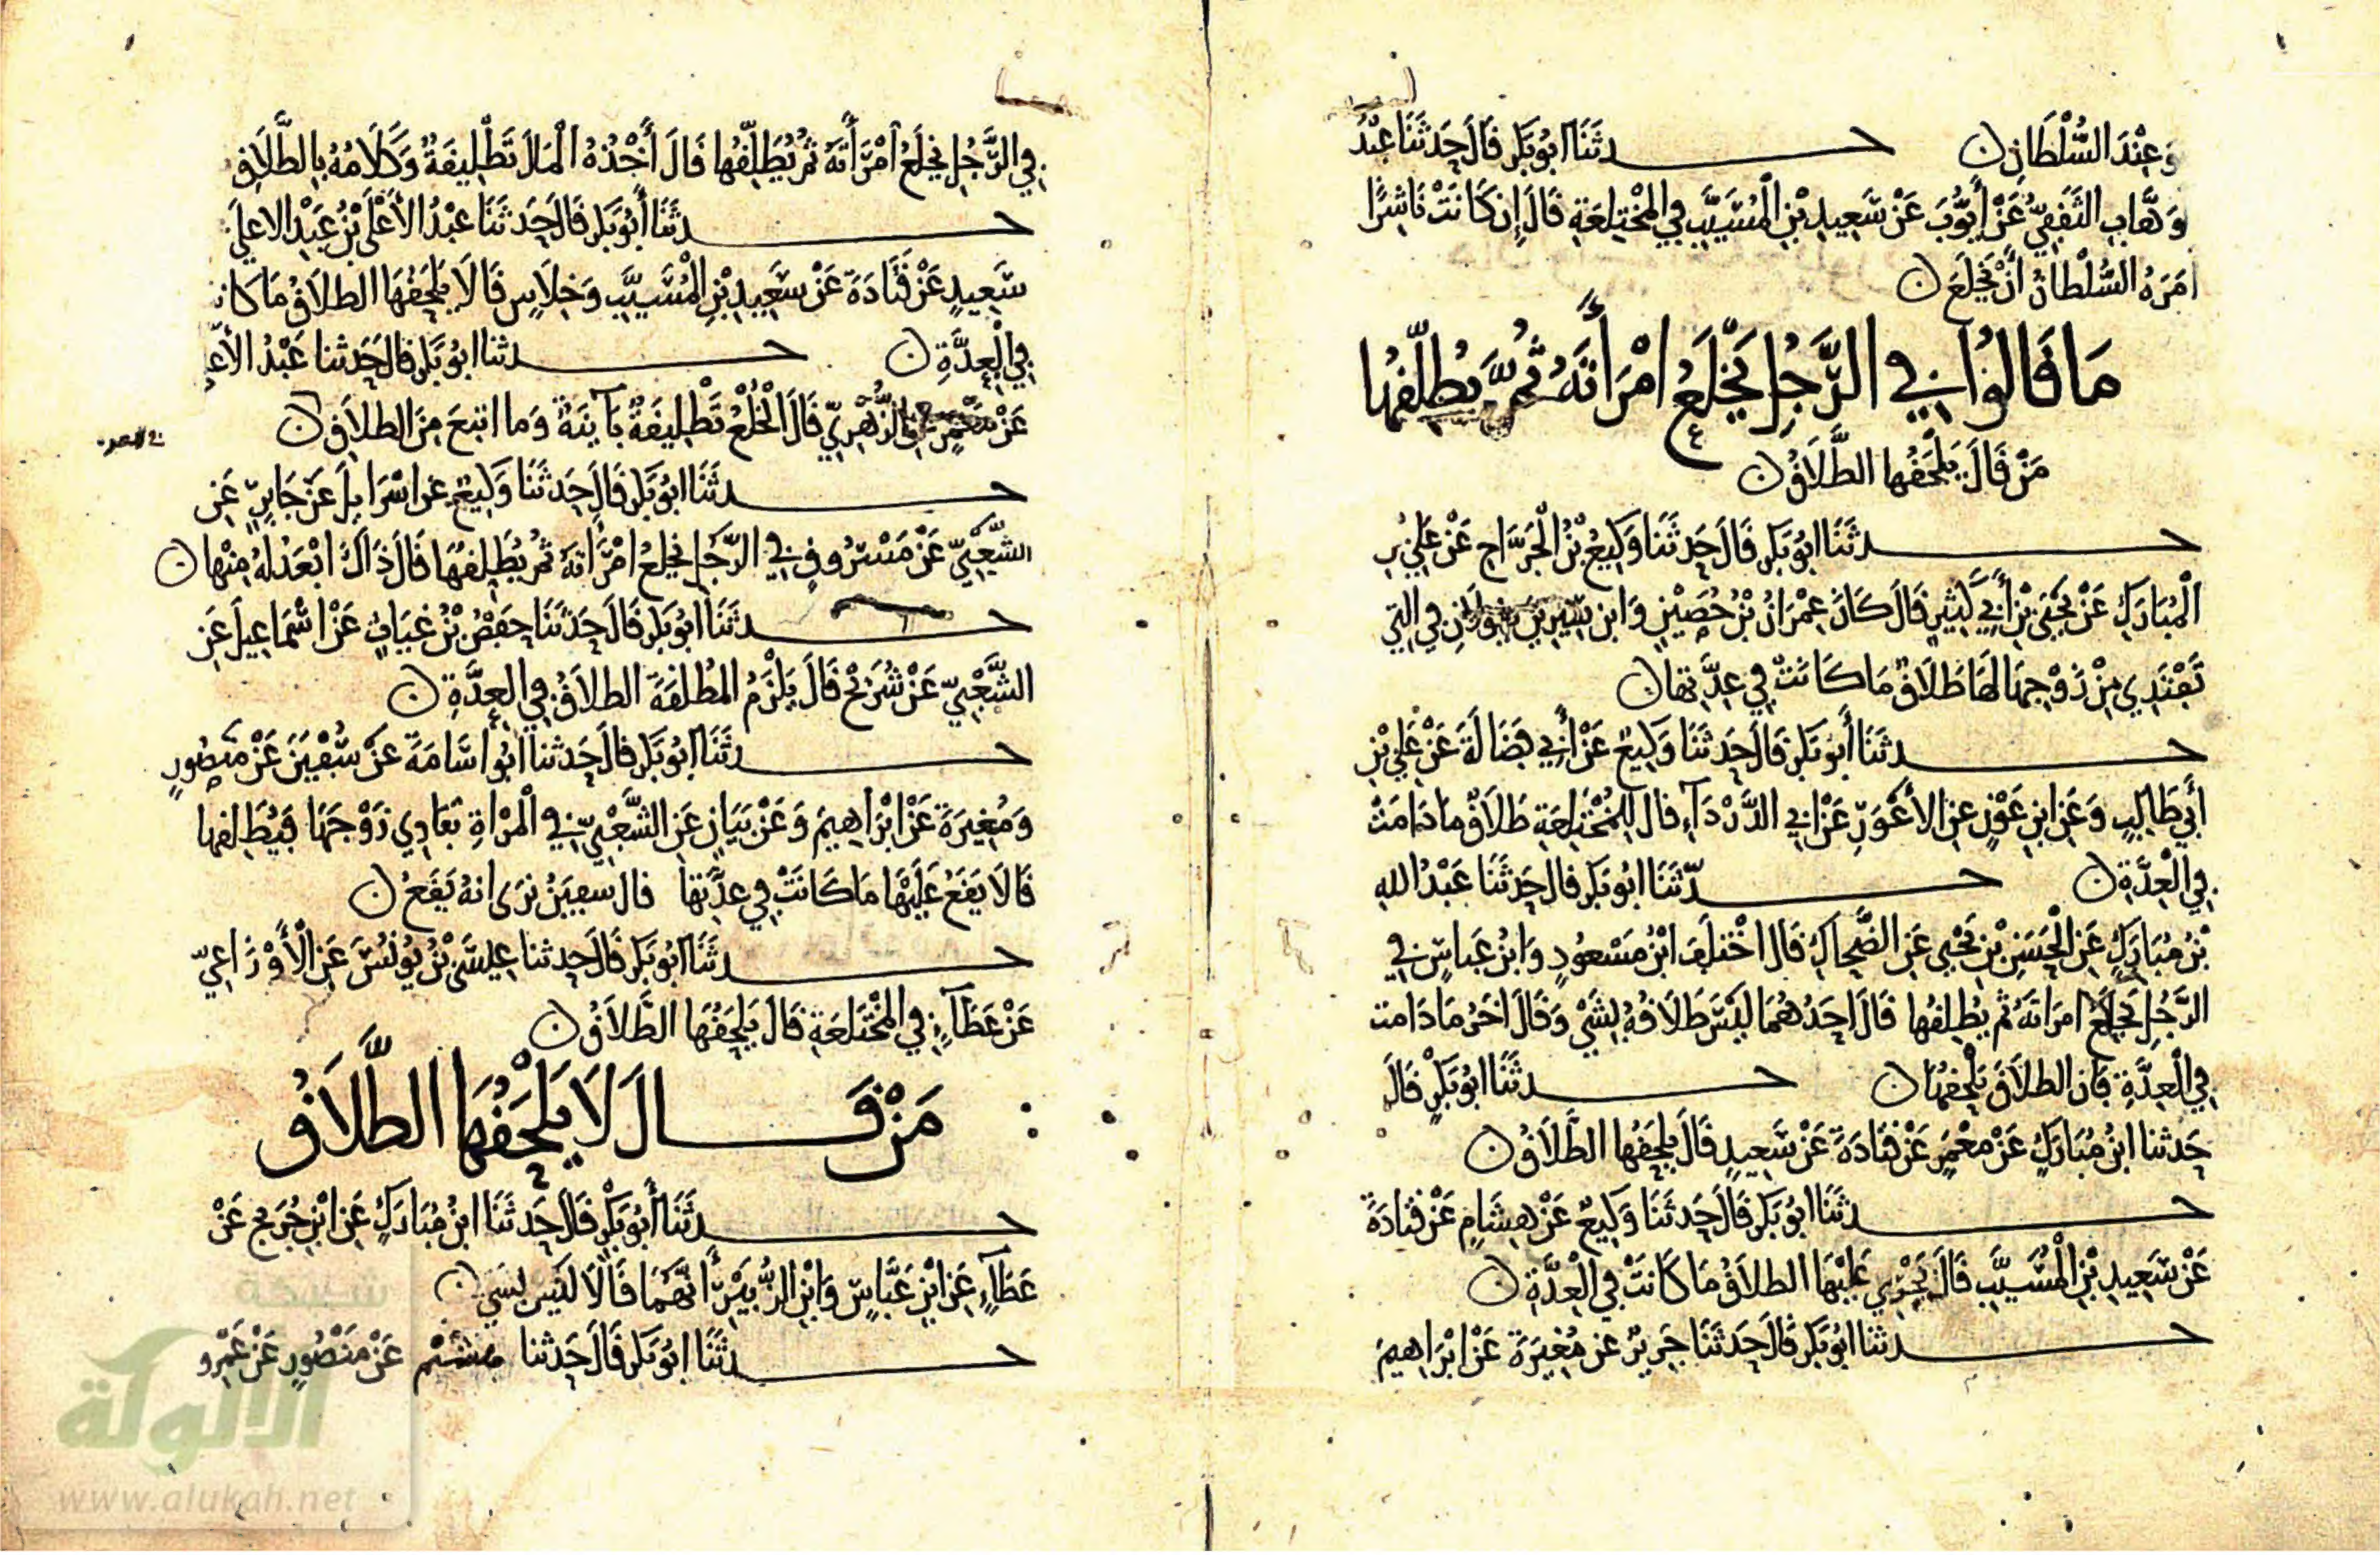 وَعِنْدَ السُّلْطَانِ ن حـدثَنَا ابُو بَكر قَالَ حَدثَنَا عَبْدُ
وَهَّابِ الثَقَفِيُّ عَنْ أَيّوُبَ عَنْ سَعِيدِ بْنِ الْمُسَيَّبِ فِي الْمُخْتِلعَةِ قَالَ إِن كَانَتْ نَاشِزًا
امَرَهُ السُّلْطانُ أَنْ يَخْلَعَ ن
مَا قَالوُا فِي الرَّجُلِ يَخْلَعُ امْرَأَتَهُ ثُمَّ يُطلِّقهُا
مَنْ قَالَ يَلْحَقُها الطَّلَاقُ ن
حـدثَنَا ابُو بَكر قَالَ حَدثَنَا وَكِيعُ بْنُ الْجَرَّاحِ عَنْ عَلِيِّ بْنِ
الْمُبَارَكِ عَنْ يَحْيَى بْنِ أَبِي كَثِيرٍ قَالَ كَانَ عِمْرَانُ بْنُ حُصَيْنٍ وَابن مَسعُودٍ يَقولَانِ فِي التِي
تَفْتَدِي مِنْ زَوْجِهَا لَهَا طَلَاقٌ مَا كَانَتْ فِي عِدَّتِها ن
حـدثَنَا أَبُو بَكر قَالَ حَدثَنَا وَكِيعٌ عَنْ أَبِي فَضَالَةَ عَنْ عَلِيِّ بْنِ
أَبِي طَالِبٍ وَعَنِ ابنِ عَوْنٍ عنِ الأَعْوَرِ عَنْ ابِي الدَّرْدَاءِ قالَ لِلمُخْتَلِعَةِ طَلَاقٌ ما دَامَتْ
فِي الْعِدَّةِ ن حـدثَنَا ابُو بَكر قالَ حَدثَنَا عَبْدُ اللهِ
بْنُ مُبَارَكٍ عَنِ الْحَسَنِ بْنِ يَحْيى عَنِ الضَّحاكِ قَالَ اخْتلَفَ ابْنُ مَسْعُودٍ وَابْنُ عَباسٍ فِي
الرَّجُلِ يَخْلَعُ امرَاتَهُ ثُم يُطلِقُها قَالَ احَدُهُمَا لَيْسَ طَلَاقُهُ بِشَيْءٍ وَقَالَ اخَرُ مَا دَامت
فِي الْعِدَّةِ فان الطلَاقَ يَلْحقُهَا ن حـدثَنَا ابُو بَكْرٍ قَالَ
حَدثنا ابنُ مُبَارَكٍ عَنْ مَعْمَرٍ عَنْ قتَادَةَ عَنْ سَعِيدٍ قَالَ يلْحَقُها الطَّلَاقُ ن
حـدثَنَا ابُو بَكر قَالَ حَدثَنَا وَكِيعٌ عَنْ هِشَامٍ عَنْ قتادَةَ
عَنْ سَعِيدِ بْنِ الْمُسَيَّبِ قَالَ يَجْرِي عَلَيْهَا الطلَاقُ مَا كَانَتْ فِي الْعِدَّةِ ن
حـدثنا ابُو بَكر قَالَ حَدثَنَا جَرِيرٌ عن مُغِيرَةَ عَنْ ابْرَاهِيمَ
فِي الرَّجُلِ يَخْلَعُ امْرَأَتَهُ ثُمَّ يُطَلِّقُها قَالَ أَخْذُهُ الْمَالَ تَطْلِيقَةٌ وَكَلَامُهُ بِالطَّلَاقِ
حـدثَنَا أَبُو بَكر قَالَ حَدثَنَا عَبْدُ الأَعْلَى بْنُ عَبْدِ الاعلَى
سَعِيدٍ عَنْ قَتَادَةَ عَنْ سَعِيدِ بْنِ الْمُسَيَّبِ وَخِلَاسٍ قَالَا يَلْحَقُهَا الطلَاقُ مَا كَانَت
فِي الْعِدَّةِ ن حـدثنا ابُو بَكر قالَ حَدثنا عَبْدُ الأَعـ
عَنْ مَعْمَرٍ عَنِ الزُّهْرِيِّ قَالَ الْخُلْعُ تَطْلِيقَةٌ بَآينَةٌ وَما اتبعَ مِنَ الطلَاقِ ن
حـدثَنَا ابُو بَكر قَالَ حَدثَنَا وَكِيعٌ عن اسْرَايِلَ عَنْ جَابِرٍ عَنِ
الشَّعْبِيِّ عَنْ مَسْرُوقٍ فِي الرَّجُلِ يَخلعُ امْرَأَتهُ ثمُ يُطَلِقُهَا قَالَ ذَاكَ ابْعَدُ لهُ مِنْها ن
حـدثَنَا ابُو بَكر قَالَ حَدثَنَا حفْصُ بْنُ غِيَاثٍ عَنْ اسْمَاعِيلَ عَنِ
الشَّعْبِيِّ عَنْ شُرَيْحٍ قَالَ يَلْزَمُ المُطلقَةَ الطلَاقُ فِي العِدَّةِ ن
حـدثَنَا ابُو بَكر قالَ حَدثنا ابُو أُسَامَةَ عنْ سُفْيَنَ عَنْ مَنصُورٍ
وَمُغِيرَةَ عَنْ ابْرَاهِيمَ وَعَنْ بَيَانٍ عَنِ الشَّعْبِيِّ فِي الْمرْاةِ تفَادِي زَوْجَهَا فيُطَلِقها
قَالَا يَقَعُ عَلَيْهَا مَا كَانَتْ فِي عِدَّتها قالَ سفيَنُ نرَى انهُ يَقَعُ ن
حـدثَنَا ابُو بَكر قَالَ حَدثنا عِيسَى بْنُ يُونُسَ عَنِ الْأَوْزَاعِيِّ
عَنْ عَطَآءٍ فِي المُخْتَلعَةِ قَالَ يَلحَقُهَا الطَّلَاقُ ن
مَنْ قَـــالَ لَا يَلْحَقُهَا الطَّلَاقُ
حـدثَنَا أَبُو بَكْرٍ قَالَ حَدثَنَا ابنُ مُبَارَكٍ عَنِ ابْنِ جُرَيجٍ عَنْ
عَطَآءٍ عَنِ ابْنِ عَبَّاسٍ وَابْنِ الزُّبَيْرِ أَنَّهُمَا قَالَا لَيْسَ بشَي ن
حـدثَنَا ابُو بَكر قَالَ حَدثنا هشَيْم عَنْ مَنْصُورٍ عَنْ عَمْرو
شبكة
الألوكة
www.alukah.net